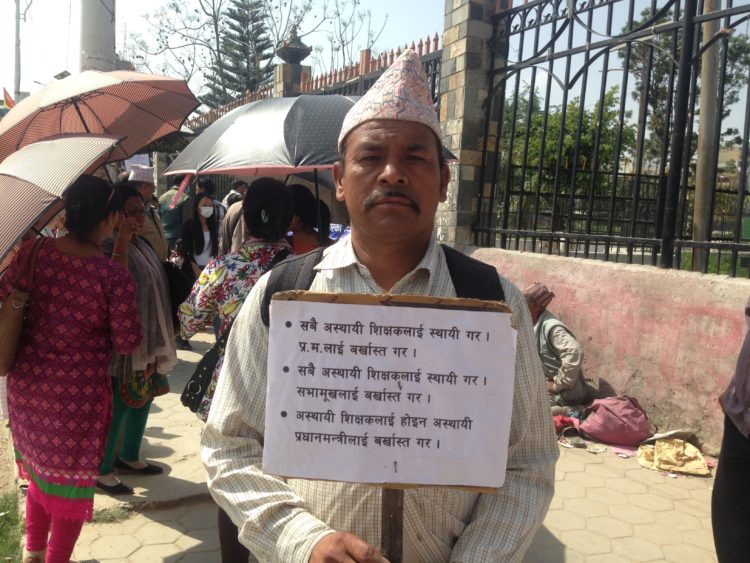 • सबै अस्थायी शिक्षकलाई स्थायी गर ।
प्र.म.लाई बर्खास्त गर ।
• सबै अस्थायी शिक्षकलाई स्थायी गर ।
सभामूखलाई बर्खास्त गर ।
• अस्थायी शिक्षकलाई होइन अस्थायी
प्रधानमन्त्रीलाई बर्खास्त गर ।